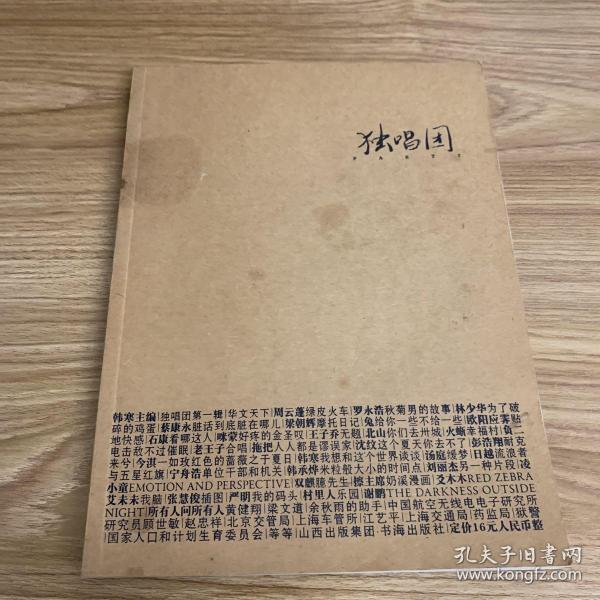 独唱团
PART 1
韩寒主编|独唱团第一辑|华文天下|周云蓬绿皮火车|罗永浩秋菊男的故事|林少华为了破
碎的鸡蛋|蔡康永脏话到底脏在哪儿|梁朝辉摩托日记|兔给你一些不给一些|欧阳应霁贴
地快感|石康看哪这人|咪蒙好疼的金圣叹|王子乔无题|北山你们去卅城|火蜥幸福村|负二
电击敌不过催眠|老王子合唱|拖把人人都是谬误家|沈纹这个夏天你去不了|彭浩翔耐克
来兮|今淇一如玫红色的蔷薇之于夏日|韩寒我想和这个世界谈谈|汤庭缓梦|日越流浪者
与五星红旗|宁舟浩单位干部和机关|韩承烨米粒般大小的时间点|刘丽杰另一种片段|凌
小童EMOTION AND PERSPECTIVE|双麒朣先生|檫主嫁奶溪漫画|艾木木RED ZEBRA
艾未未我脑|张慧俊插图|严明我的码头|村里人乐园|谢鹏THE DARKNESS OUTSIDE
NIGHT|所有人问所有人黄健翔|梁文道|余秋雨的助手|中国航空无线电电子研究所
研究员顾世敏|赵忠祥|北京交管局|上海车管所|江艺平|上海交通局|药监局|狱警
国家人口和计划生育委员会|等等|山西出版集团·书海出版社|定价16元人民币整
孔夫子旧书网
www.kongfz.com